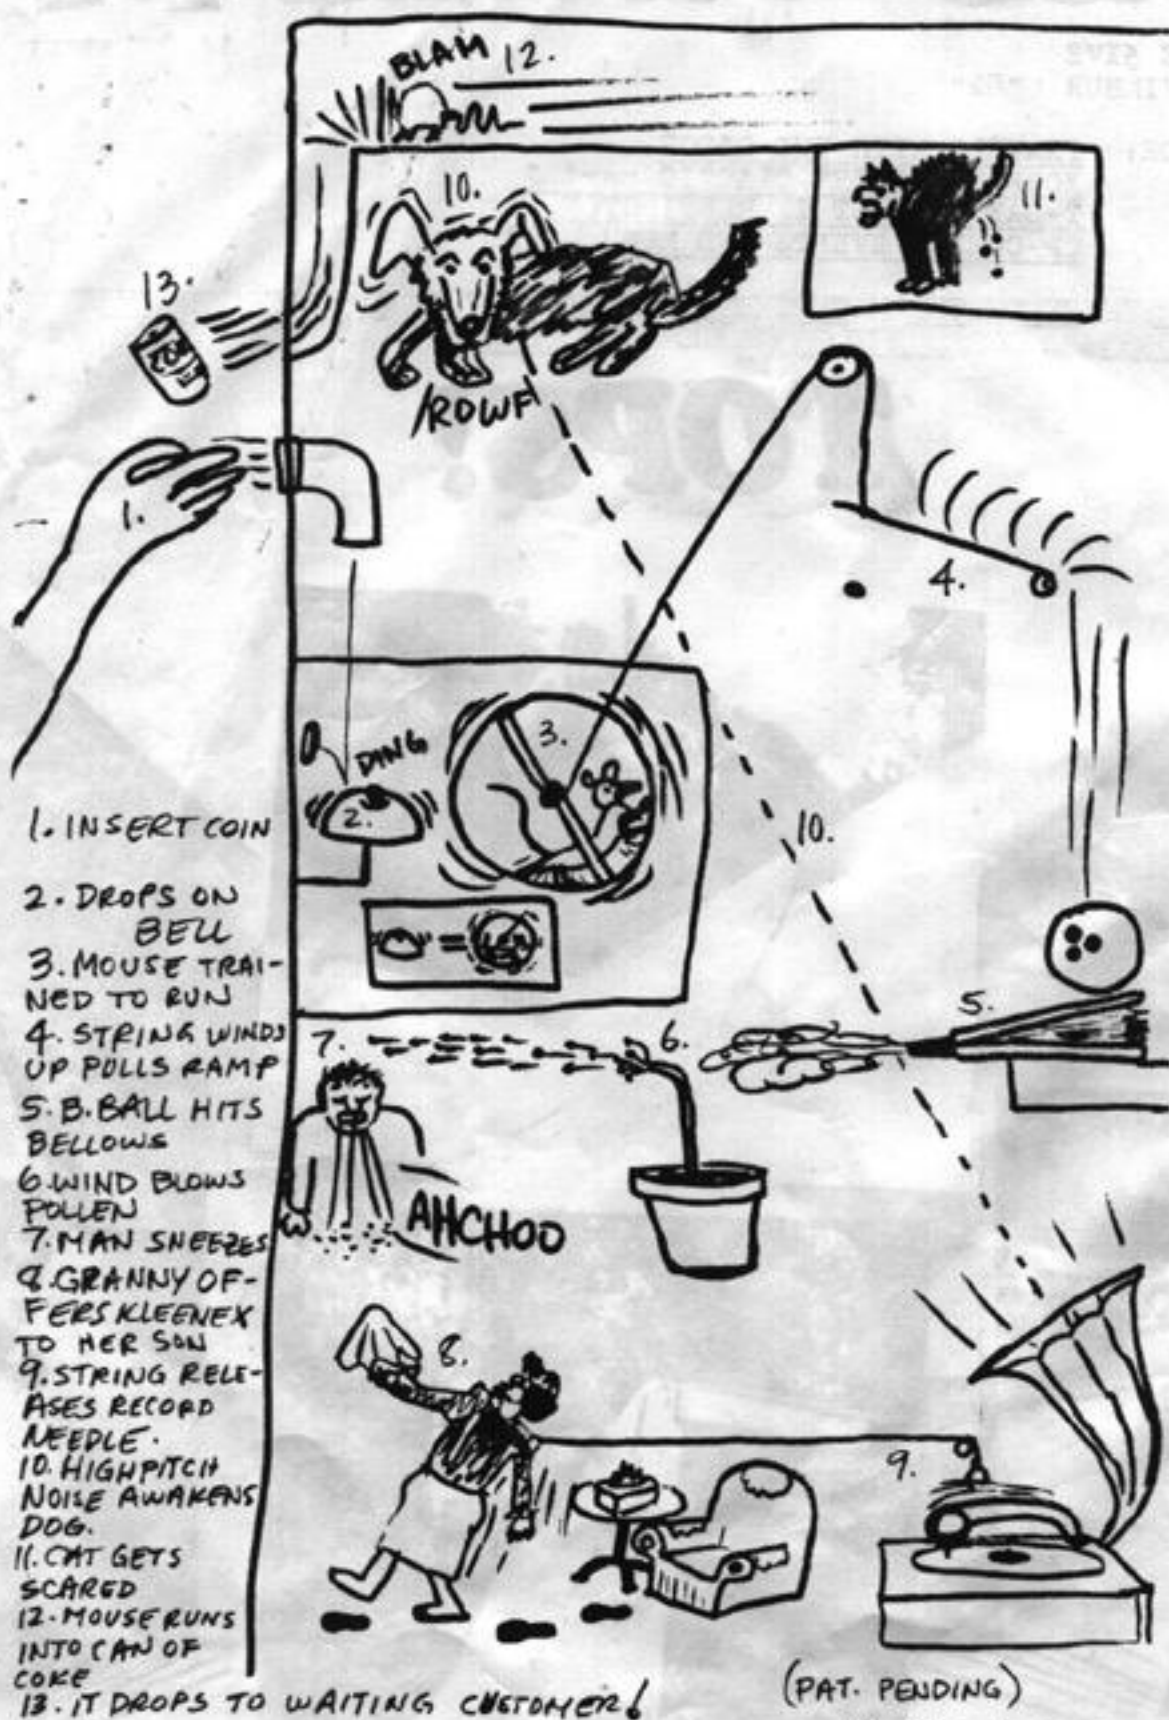 BLAM 12.
10.
11.
13.
ROWF
1.
4.
DING
3.
2.
=
10.
5.
7.
6.
AHCHOO
8.
9.
1. INSERT COIN
2. DROPS ON
BELL
3. MOUSE TRAI-
NED TO RUN
4. STRING WINDS
UP PULLS RAMP
5. B. BALL HITS
BELLOWS
6. WIND BLOWS
POLLEN
7. MAN SNEEZES
8. GRANNY OF-
FERS KLEENEX
TO HER SON
9. STRING RELE-
ASES RECORD
NEEDLE.
10. HIGH PITCH
NOISE AWAKENS
DOG.
11. CAT GETS
SCARED
12. MOUSE RUNS
INTO CAN OF
COKE
13. IT DROPS TO WAITING CUSTOMER!
(PAT. PENDING)